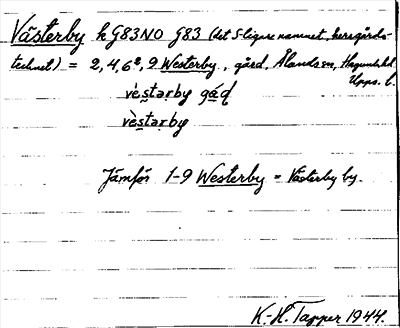 Västerby k G83NO G83 (det S ligare namnet, herrgårds-
tecknet) = 2, 4, 6², 9 Westerby, gård, Ålands sn, Hagunda hd
Upps. l.
vèstərby gɑ́d
vèstərby
Jämför 1-9 Westerby = Västerby by.
K.-H. Tapper 1944.